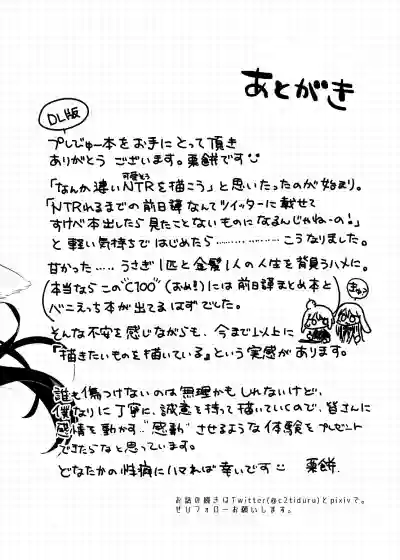 あとがき
DL版
プレビュー本をお手にとって頂き
ありがとう ございます。栗餅です
可愛そう
「なんか凄いNTRを描こう」と思いたったのが始まり。
「NTRれるまでの前日譚なんてツイッターに載せて
すけべ本出したら見たことないものになるんじゃねーの!」
と軽い気持ちではじめたら……………こうなりました。
甘かった……うさぎ1匹と金髪1人の人生を背負うハメに。
本当なら この"C100"(おめ!)には前日譚まとめ本と
べにえっち本が出てるはずでした。
きゅっ
そんな不安を感じながらも、今まで以上に
『描きたいものを描いている』という実感があります。
誰も傷つけないのは無理かもしれないけど、
僕なりに丁寧に、誠意を持って描いていくので、皆さんに
感情を動かす"感動"させるような体験をプレゼント
できたらなと思っています。
どなたかの性癖にハマれば幸いです 栗餅.
お話の続きはTwitter(@c2tiduru)とpixivで。
ぜひフォローお願いします。